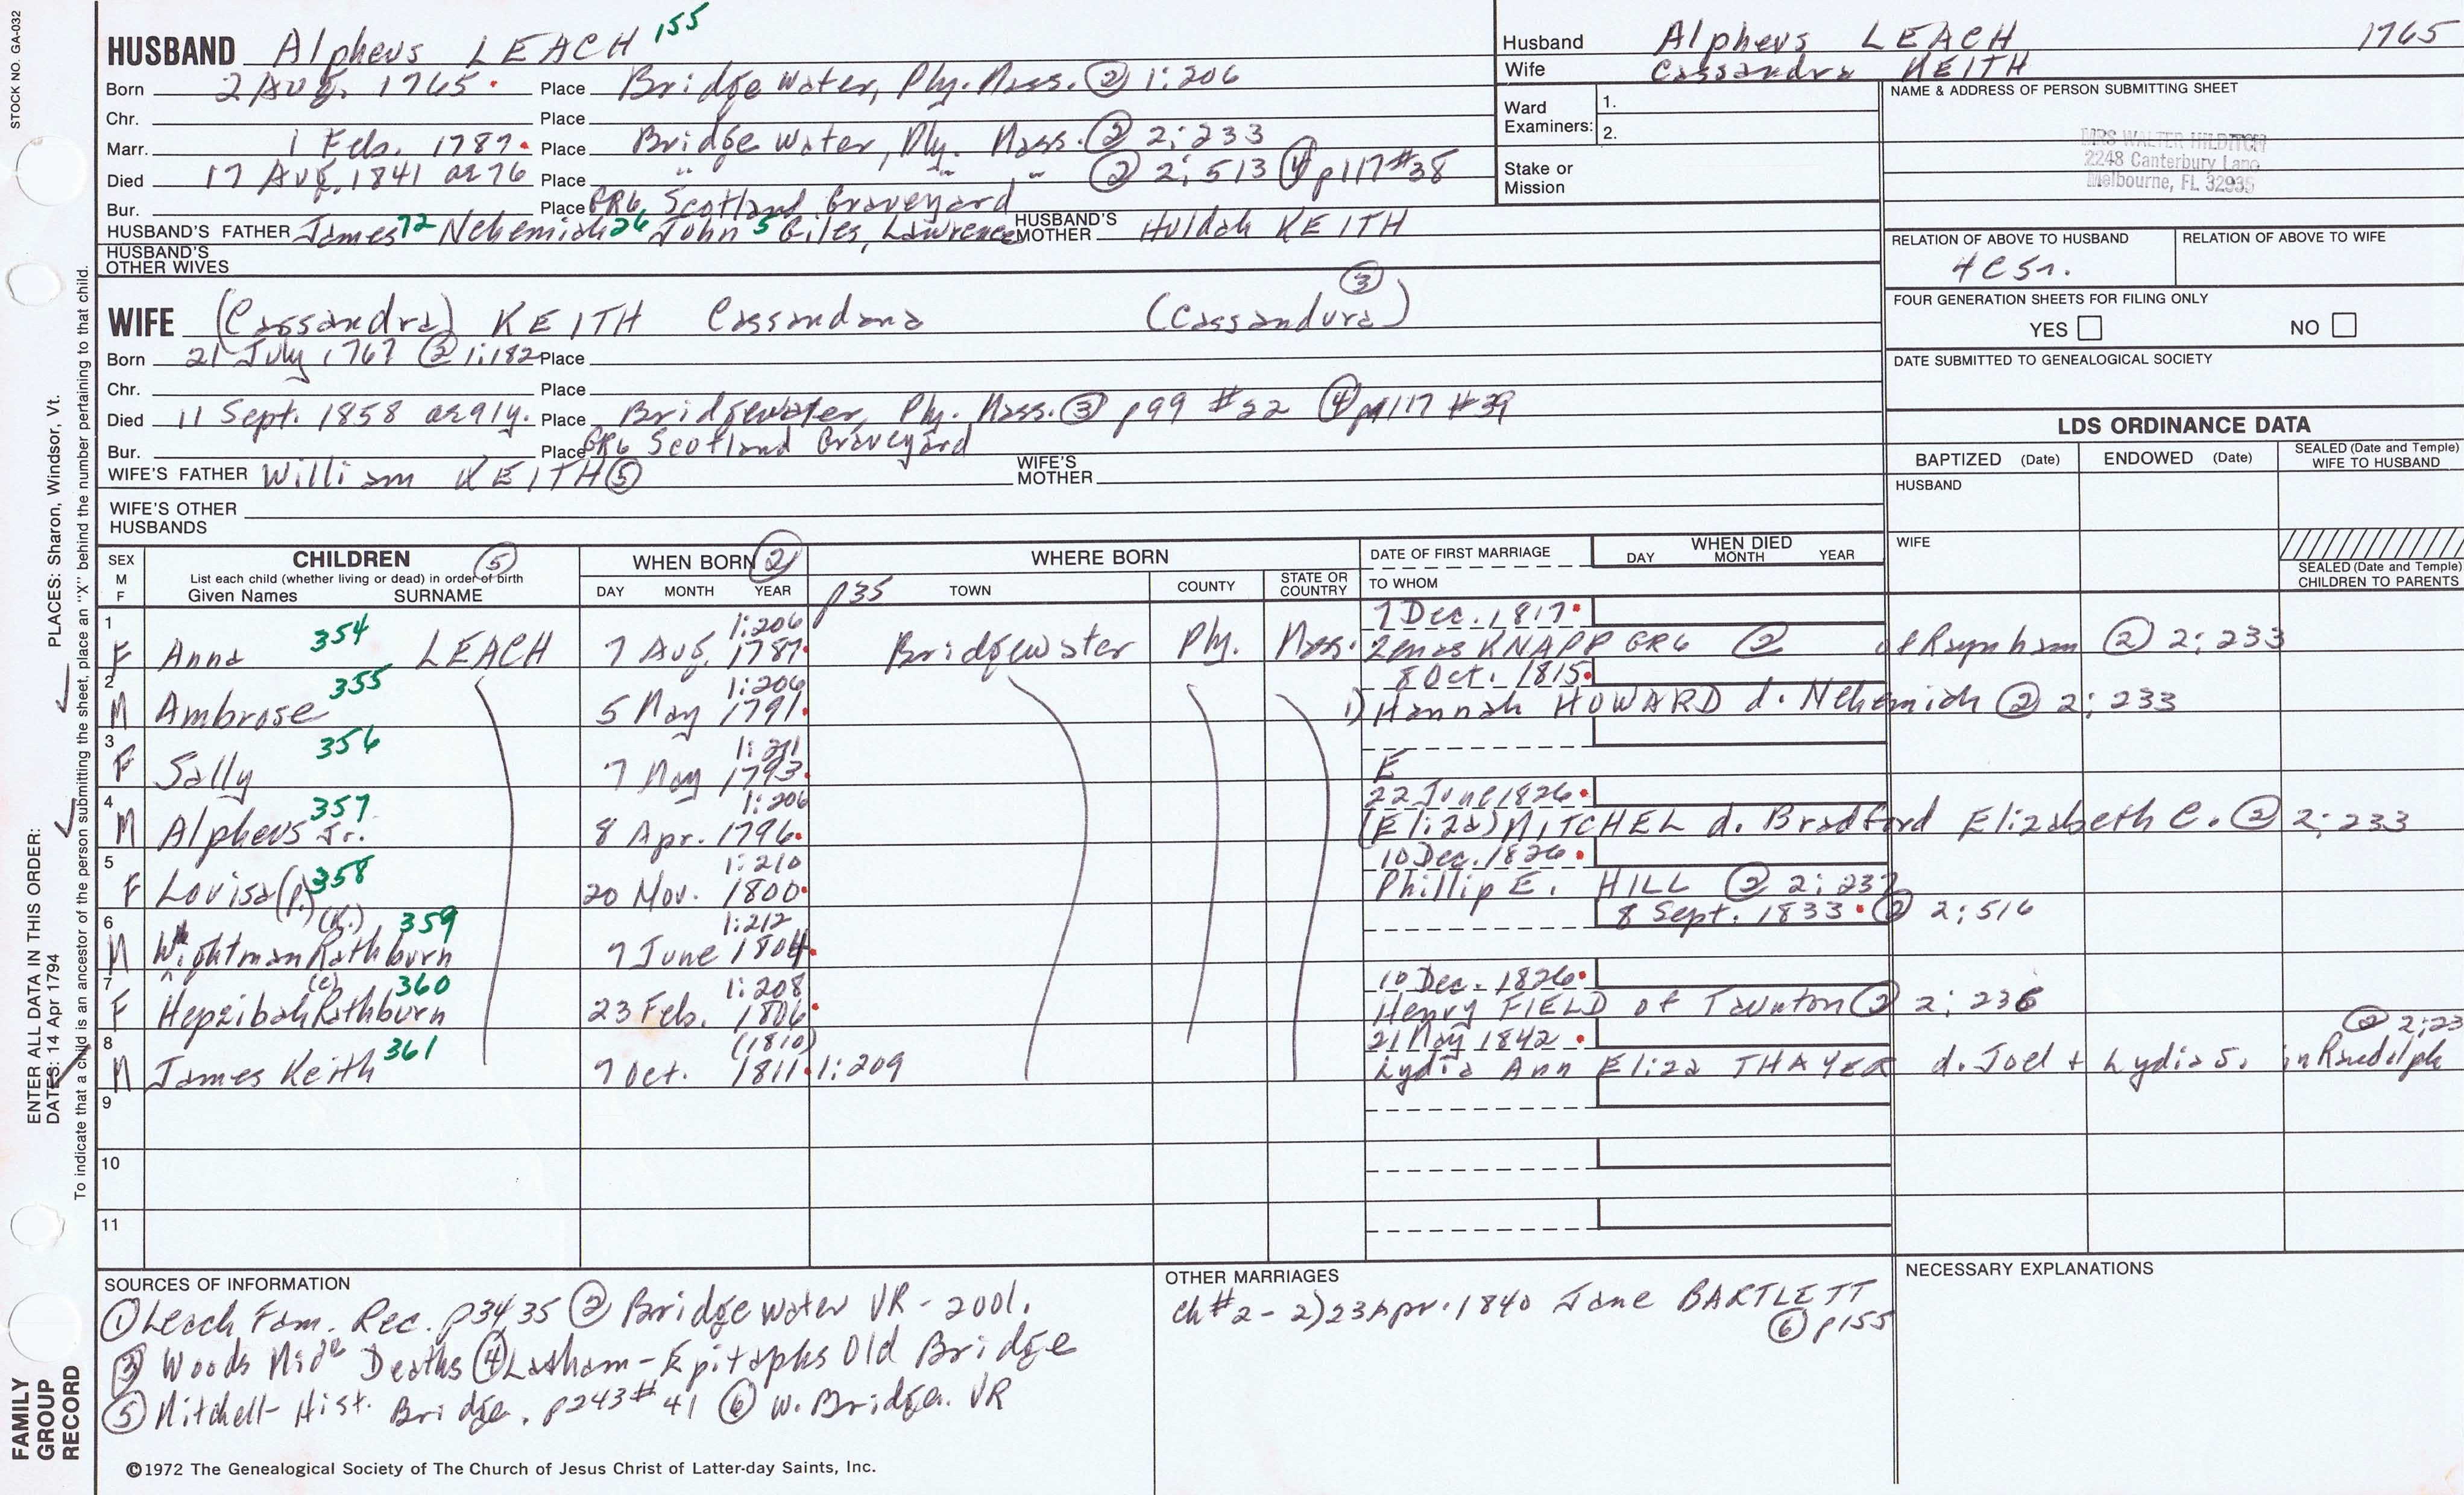 STOCK NO. GA-032
HUSBAND Alpheus LEACH 155
Born 2 Aug. 1765 Place Bridgewater, Ply. Mass. ② 1:206
Chr. Place
Marr. 1 Feb. 1787 Place Bridgewater, Ply. Mass. ② 2:233
Died 17 Aug. 1841 ae 76 Place " " " ② 2:513 ④ p117 #38
Bur. Place GR6 Scotland Graveyard
HUSBAND'S FATHER James 72 Nehemiah 26 John 5 Giles, Lawrence HUSBAND'S MOTHER Huldah KEITH
HUSBAND'S OTHER WIVES
Husband Alpheus LEACH 1765
Wife Cassandra KEITH
Ward Examiners: 1.
2.
Stake or Mission
NAME & ADDRESS OF PERSON SUBMITTING SHEET
MRS WALTER HILDITCH
2248 Canterbury Lane
Melbourne, FL 32935
RELATION OF ABOVE TO HUSBAND RELATION OF ABOVE TO WIFE
4C5r.
FOUR GENERATION SHEETS FOR FILING ONLY
YES NO
DATE SUBMITTED TO GENEALOGICAL SOCIETY
WIFE (Cassandra) KEITH Cassandana (Cassandura) ③
Born 21 July 1767 ② 1:182 Place
Chr. Place
Died 11 Sept. 1858 ae 91y. Place Bridgewater, Ply. Mass. ③ p99 #22 ④ p117 #39
Bur. Place GR6 Scotland Graveyard
WIFE'S FATHER William KEITH ⑤ WIFE'S MOTHER
WIFE'S OTHER HUSBANDS
LDS ORDINANCE DATA
BAPTIZED (Date) ENDOWED (Date) SEALED (Date and Temple) WIFE TO HUSBAND
HUSBAND
WIFE
SEALED (Date and Temple) CHILDREN TO PARENTS
SEX M F CHILDREN ⑤ List each child (whether living or dead) in order of birth Given Names SURNAME
WHEN BORN ② DAY MONTH YEAR
WHERE BORN p35 TOWN COUNTY STATE OR COUNTRY
DATE OF FIRST MARRIAGE TO WHOM
WHEN DIED DAY MONTH YEAR
1 354 1:206 7 Dec. 1817
F Anna LEACH 7 Aug. 1787 Bridgewater Ply. Mass. Zenas KNAPP GR6 ② of Raynham ② 2:233
2 355 1:206 8 Oct. 1815
M Ambrose 5 May 1791 1) Hannah HOWARD d. Nehemiah ② 2:233
3 356 1:211
F Sally 7 May 1793 E
4 357 1:206 22 June 1826
M Alpheus Jr. 8 Apr. 1796 (Eliza) MITCHEL d. Bradford Elizabeth C. ② 2:233
5 358 1:210 10 Dec. 1826
F Lovisa (P.) 20 Nov. 1800 Phillip E. HILL ② 2:237
6 (K.) 359 1:212 8 Sept. 1833 ② 2:516
M Wightman Rathburn 7 June 1804
7 (e) 360 1:208 10 Dec. 1826
F Hepzibah Rathburn 23 Feb. 1806 Henry FIELD of Taunton ② 2:236
8 361 (1810) 21 May 1842 ② 2:23
M James Keith 7 Oct. 1811 1:209 Lydia Ann Eliza THAYER d. Joel + Lydia S. in Randolph
9
10
11
SOURCES OF INFORMATION
① Leach Fam. Rec. p34,35 ② Bridgewater VR - 2vol.
③ Woods Deaths ④ Latham - Epitaphs Old Bridge
⑤ Mitchell - Hist. Bridge. p243 #41 ⑥ W. Bridge. VR
OTHER MARRIAGES
ch #2 - 2) 23 Apr. 1840 Jane BARTLETT
⑥ p155
NECESSARY EXPLANATIONS
©1972 The Genealogical Society of The Church of Jesus Christ of Latter-day Saints, Inc.
FAMILY GROUP RECORD
ENTER ALL DATA IN THIS ORDER:
DATES: 14 Apr 1794
PLACES: Sharon, Windsor, Vt.
To indicate that a child is an ancestor of the person submitting the sheet, place an "X" behind the number pertaining to that child.